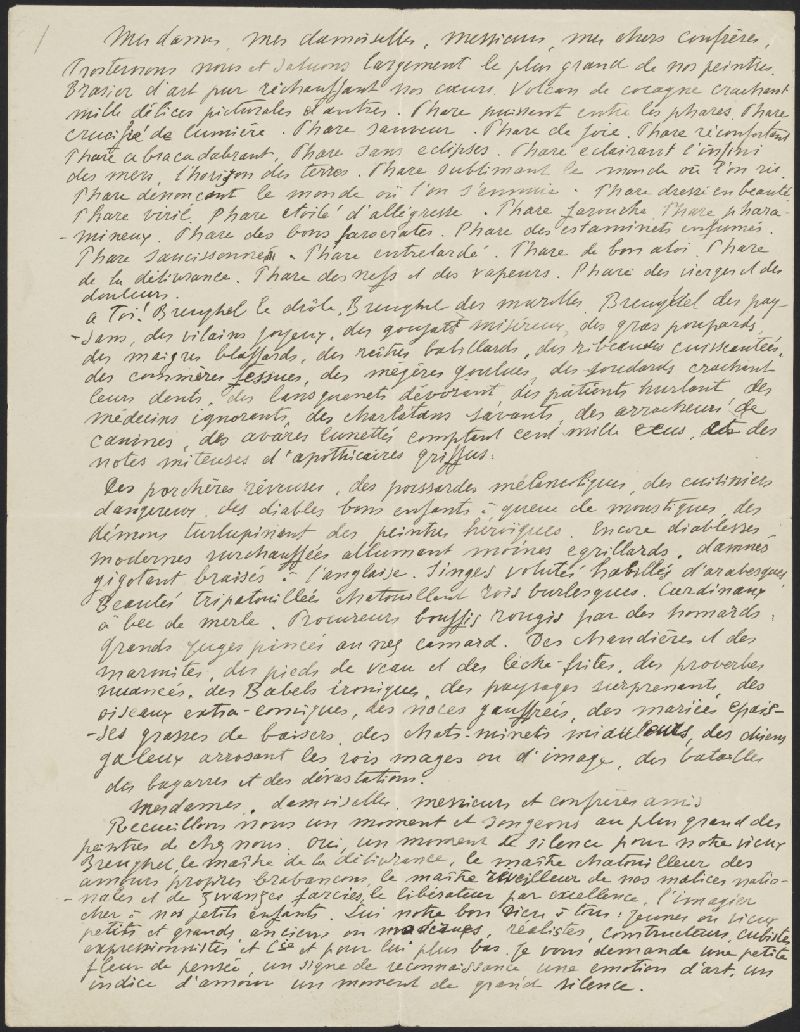 1
Mesdames, mes damoiselles, messieurs, mes chers confrères,
Prosternons nous et saluons largement le plus grand de nos peintres.
Brasier d'art pur réchauffant nos cœurs. Volcan de cocagne crachant
mille délices picturales et autres. Phare puissant entre les phares. Phare
crucifié de lumière. Phare sauveur. Phare de joie. Phare réconfortant
Phare abracadabrant, Phare sans eclipses. Phare eclairant l'infini
des mers, l'horizon des terres. Phare sublimant le monde où l'on rit
Phare dénonçant le monde où l'on s'ennuie. Phare dressé en beauté
Phare viril. Phare etoilé d'allégresse. Phare farouche. Phare phara-
-mineux. Phare des bons farocrates. Phare des estaminets enfumés.
Phare saucissonné. Phare entrelardé. Phare de bon aloi. Phare
de la délivrance. Phare des nefs et des vapeurs. Phare des vierges et des
douleurs.
a Toi! Breughel le drôle, Breughel des marolles. Breughel des pay-
-sans, des vilains joyeux, des goujats miséreux, des gras poupards,
des maigres blaffards, des reitres babillards, des ribaudes cuissautées,
des commères fessues, des mégères goulues, des soudards crachant
leurs dents, des lansquenets dévorant des patients hurlant des
médecins ignorants, des charlatans savants, des arracheurs de
canines, des avares lunettés comptant cent mille ecus, des
notes miteuses d'apothicaires griffus.
Des porchères rêveuses, des poissardes mélancoliques, des cuisiniers
dangereux, des diables bons enfants à queue de moustiques, des
démons turlupinant des peintres héroiques. Encore diablesses
modernes surchauffées allumant moines egrillards, damnés
gigotant braisés à l'anglaise. Singes volutés habillés d'arabesques
Beautés tripatouillées chatouillant rois burlesques. Cardinaux
à bec de merle. Procureurs bouffis rougis par des homards.
Grands juges pincés au nez camard. Des chaudières et des
marmites, des pieds de veau et des lèche-frites, des proverbes
nuancés, des Babels ironiques, des paysages surprenants, des
oiseaux extra-comiques, des noces gauffrées, des mariées épais-
-ses grasses de baisers, des chats-minets, des chiens
galeux arrosant les rois mages ou d'image, des batailles
des bagarres et des dévastations.
Mesdames, damoiselles, messieurs et confrères amis
Recueillons nous un moment et songeons au plus grand des
peintres de chez nous. oui, un moment de silence pour notre vieux
Breughel, le maître de la délivrance, le maître chatouilleur des
amours propres brabançons, le maître réveilleur de nos malices natio-
-nales et de zwanzes farcies, le libérateur par excellence, l'imagier
cher à nos petits enfants. Lui notre bon vieux à tous, jeunes ou vieux
petits et grands, anciens ou, réalistes, constructeurs, cubistes
expressionnistes et Cie et pour lui plus bas. Je vous demande une petite
fleur de pensée, un signe de reconnaissance une emotion d'art, un
indice d'amour un moment de grand silence.